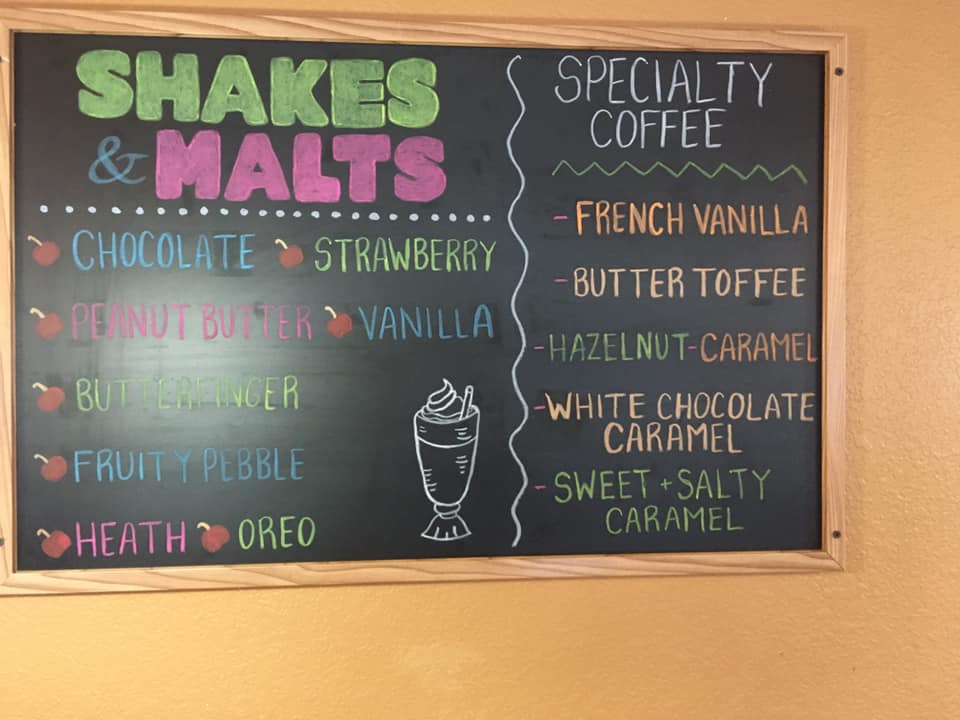 SHAKES
& MALTS
CHOCOLATE STRAWBERRY
PEANUT BUTTER VANILLA
BUTTERFINGER
FRUITY PEBBLE
HEATH OREO
SPECIALTY
COFFEE
- FRENCH VANILLA
- BUTTER TOFFEE
- HAZELNUT - CARAMEL
- WHITE CHOCOLATE
CARAMEL
- SWEET + SALTY
CARAMEL